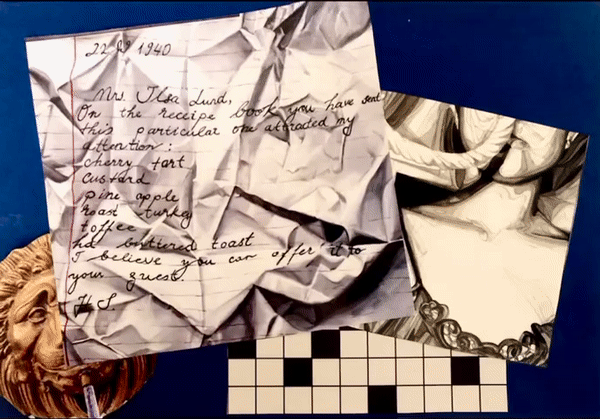 22 1940
Mrs. Ilsa Lund,
On the receipe book you have send
this particular one attracted my
attention :
cherry tart
custard
pine apple
roast turkey
toffee
buttered toast
I believe you can offer it to
your guest.